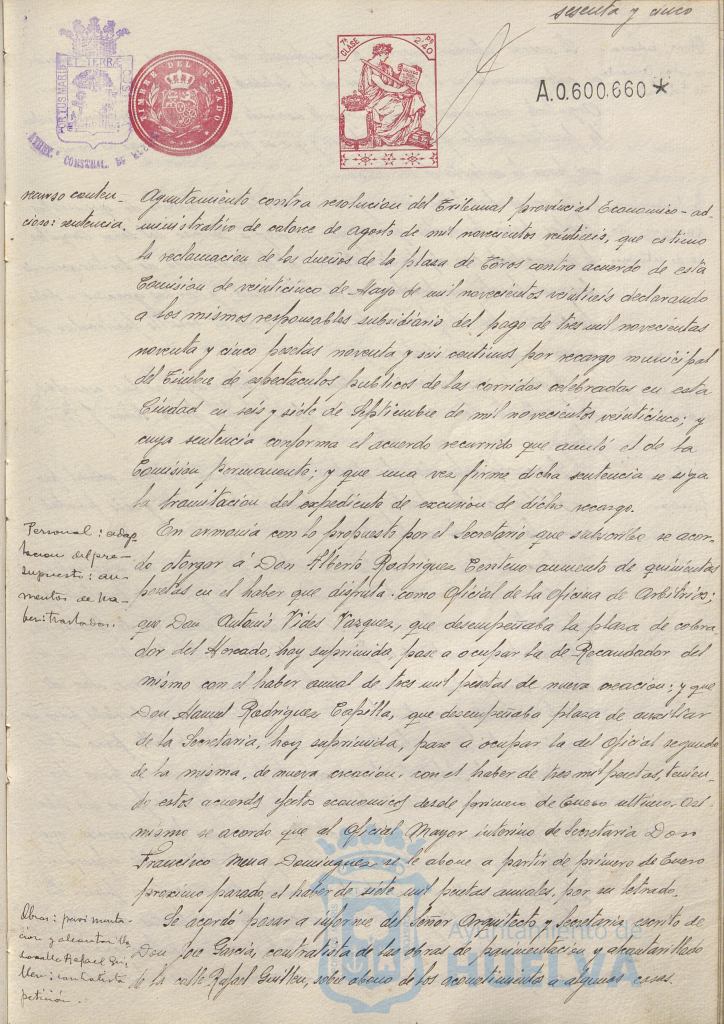 sesenta y cinco
PORTUS MARIS ET TERRÆ CUSTODIA
AYUN. CONSTNAL. DE HUELVA
TIMBRE DEL ESTADO
7ª CLASE
PS. 2'40
A.0.600.660 *
recurso conten-
cioso: sentencia.
Ayuntamiento contra resolucion del Tribunal provincial Economico-ad-
ministrativo de catorce de agosto de mil novecientos veintiseis, que estimo
la reclamacion de los dueños de la plaza de Toros contra acuerdo de esta
Comision de veinticinco de Mayo de mil novecientos veintiseis declarando
a los mismos responsables subsidiario del pago de tres mil novecientas
noventa y cinco pesetas noventa y seis centimos por recargo municipal
del Timbre de espectaculos publicos de las corridas celebradas en esta
Ciudad en seis y siete de Septiembre de mil novecientos veinticinco; y
cuya sentencia confirma el acuerdo recurrido que anuló el de la
Comision permanente; y que una vez firme dicha sentencia se siga
la tramitacion del expediente de excusion de dicho recargo.
Personal: adap
tacion del pre-
supuesto: au-
mentos de ha-
ber: traslados.
En armonia con lo propuesto por el Secretario que subscribe se acor-
do otorgar á Don Alberto Rodriguez Centeno aumento de quinientas
pesetas en el haber que disfruta como Oficial de la Oficina de Arbitrios;
que Don Antonio Vides Vazquez, que desempeñaba la plaza de cobra
dor del Mercado, hoy suprimida, pase a ocupar la de Recaudador del
mismo con el haber anual de tres mil pesetas de nueva creacion; y que
Don Manuel Rodriguez Capilla, que desempeñaba plaza de auxiliar
de la Secretaria, hoy suprimida, pase a ocupar la del Oficial segundo
de la misma, de nueva creacion, con el haber de tres mil pesetas, tenien-
do estos acuerdos efectos economicos desde primero de Enero ultimo. Asi
mismo se acordo que al Oficial Mayor interino de Secretaria Don
Francisco Mena Dominguez se le abone a partir de primero de Enero
proximo pasado, el haber de siete mil pesetas anuales, por ser letrado.
Obras: pavimenta-
cion y alcantarilla
do calle Rafael Gui-
llen: contratista
petición.
Se acordó pasar a informe del Señor Arquitecto y Secretaria escrito de
Don José Garcia, contratista de las obras de pavimentacion y alcantarillado
de la calle Rafael Guillen, sobre abono de los acometimientos a algunas casas.
Ayuntamiento de
HUELVA